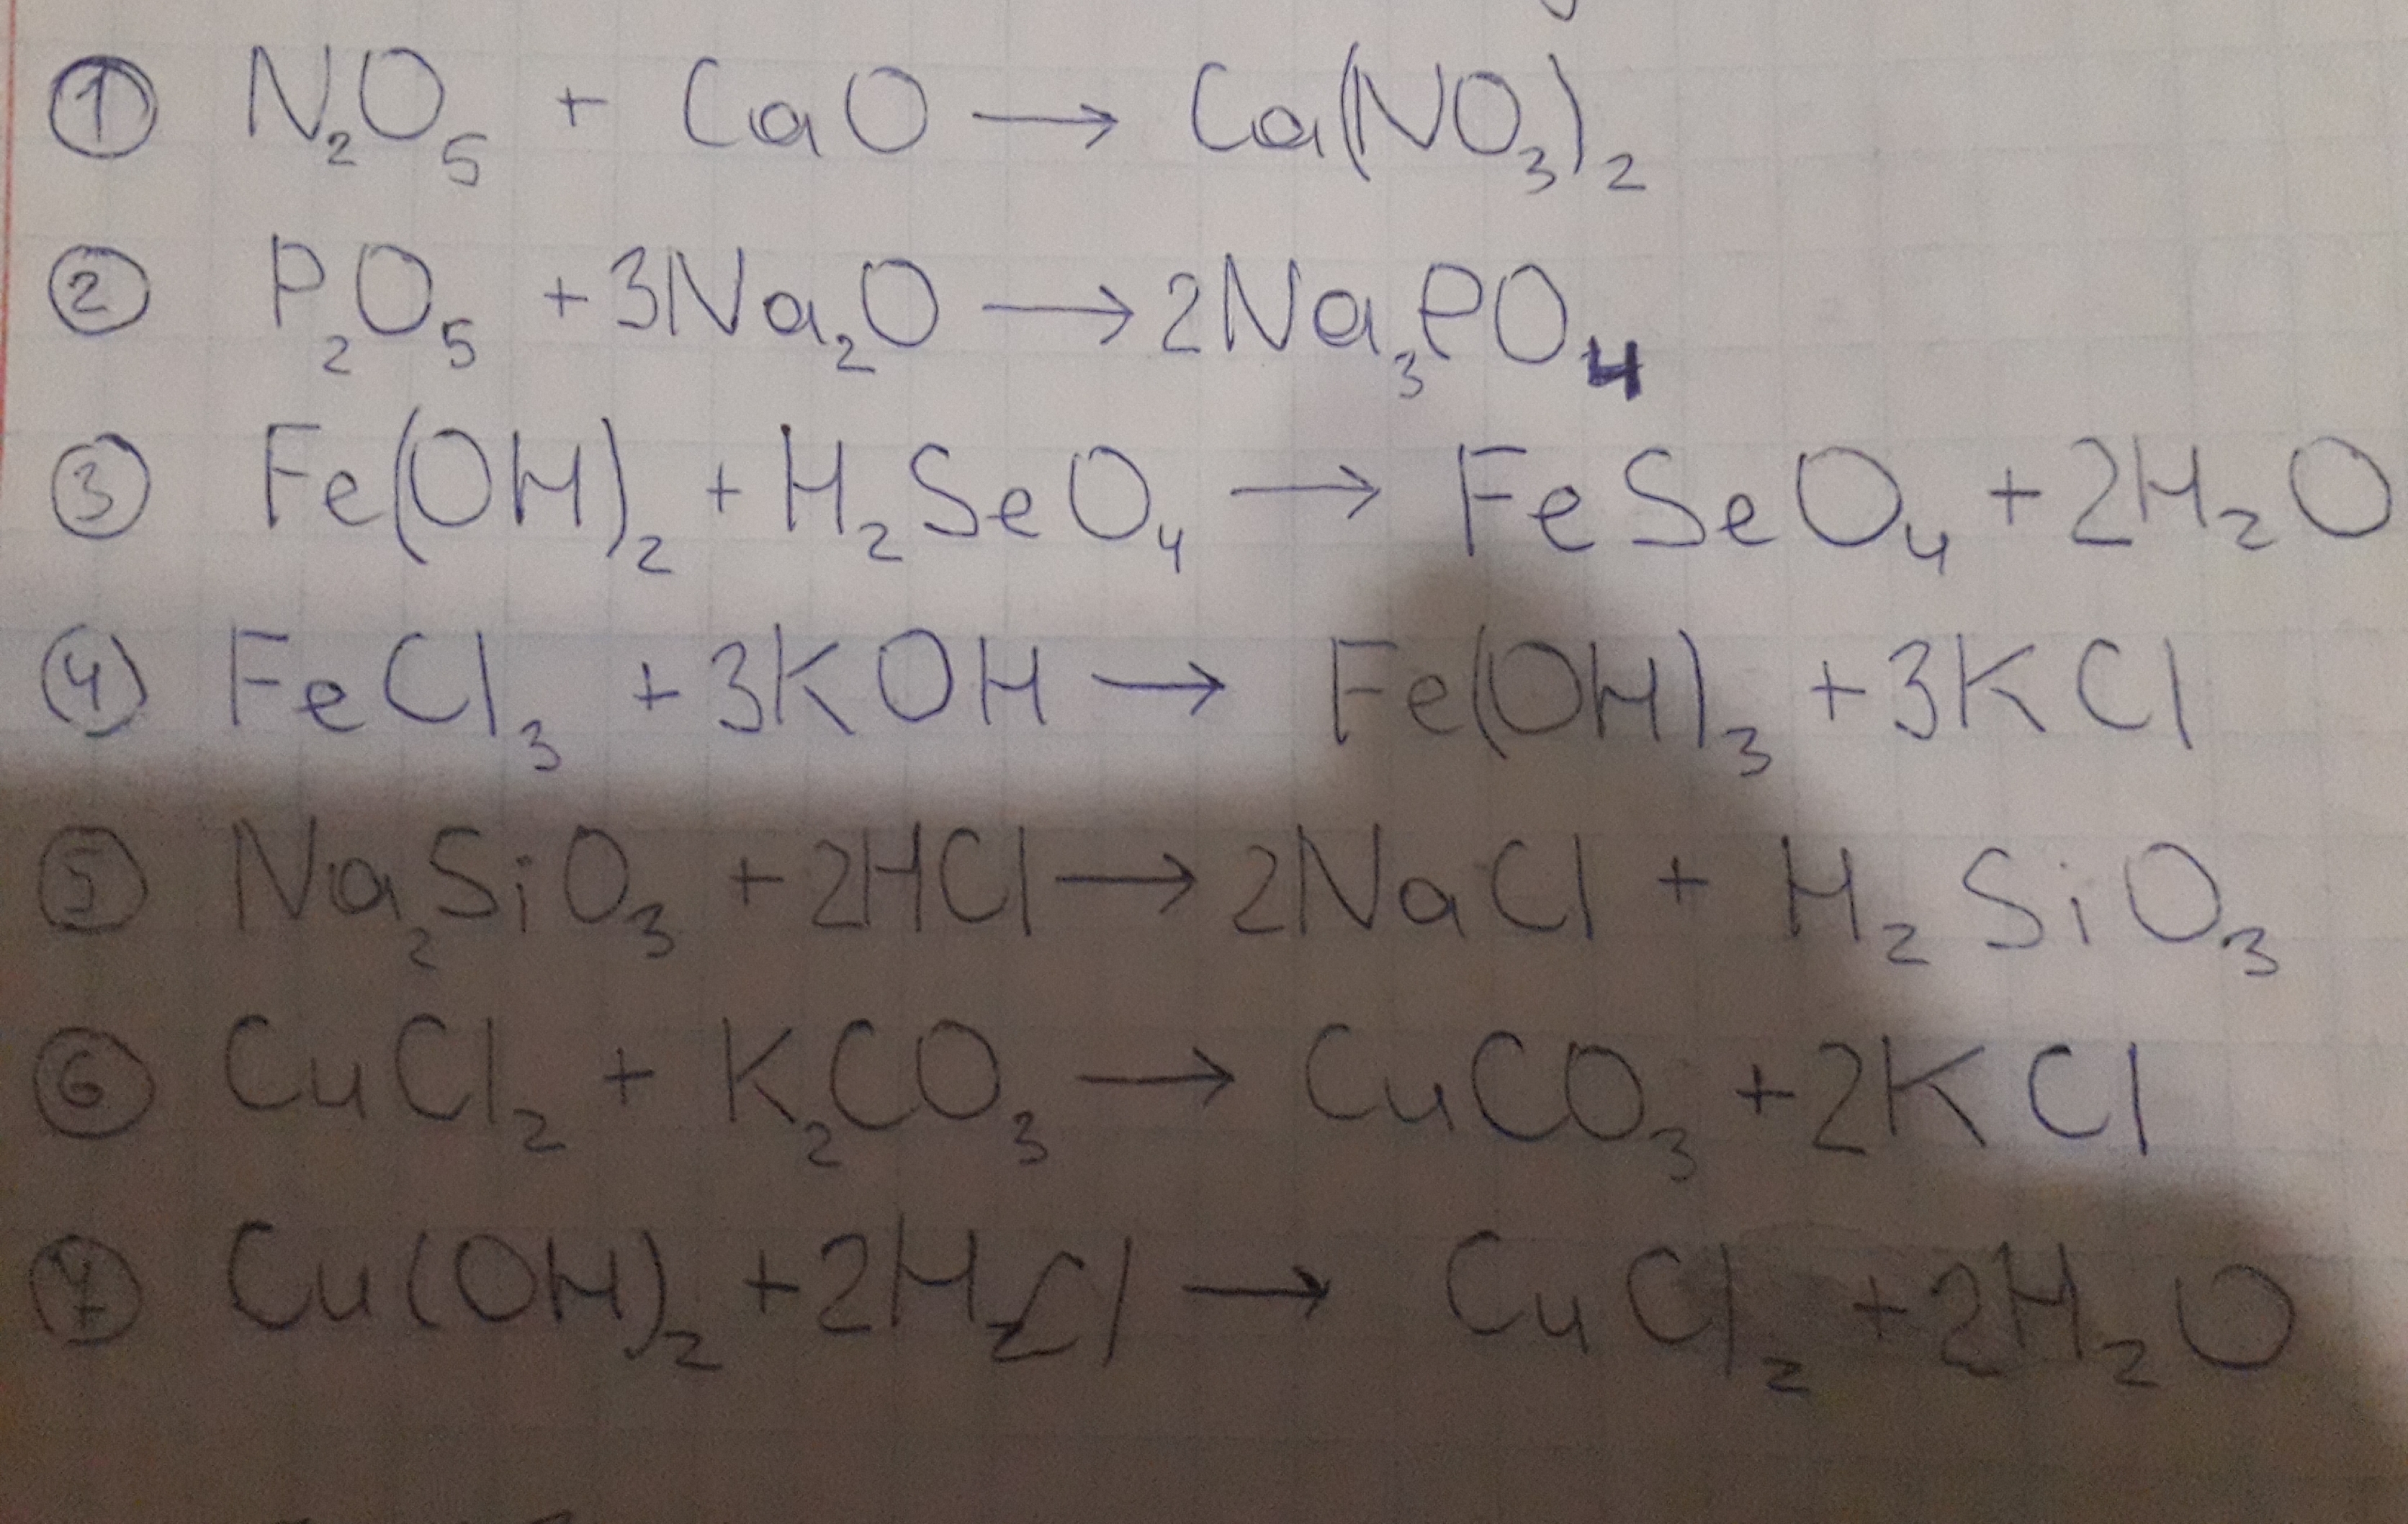 ① N₂O₅ + CaO → Ca(NO₃)₂
② P₂O₅ + 3Na₂O → 2Na₃PO₄
③ Fe(OH)₂ + H₂SeO₄ → FeSeO₄ + 2H₂O
④ FeCl₃ + 3KOH → Fe(OH)₃ + 3KCl
⑤ Na₂SiO₃ + 2HCl → 2NaCl + H₂SiO₃
⑥ CuCl₂ + K₂CO₃ → CuCO₃ + 2KCl
⑦ Cu(OH)₂ + 2HCl → CuCl₂ + 2H₂O